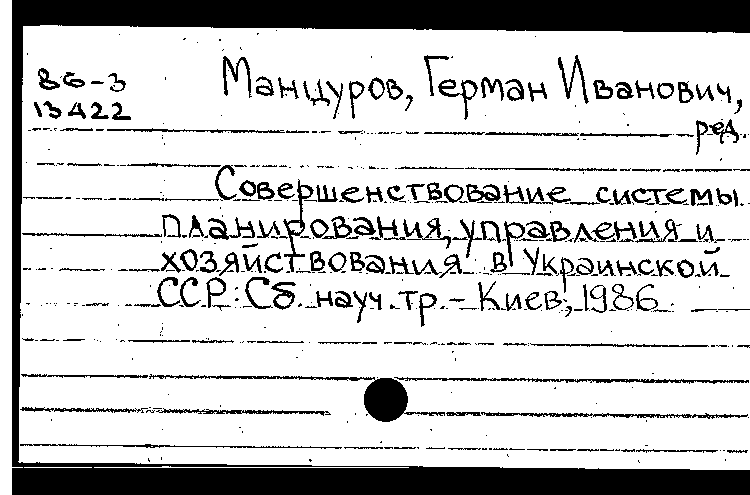 86-3
13422
Манцуров, Герман Иванович,
ред.
Совершенствование системы
планирования, управления и
хозяйствования в Украинской
ССР: Сб. науч. тр. - Киев, 1986